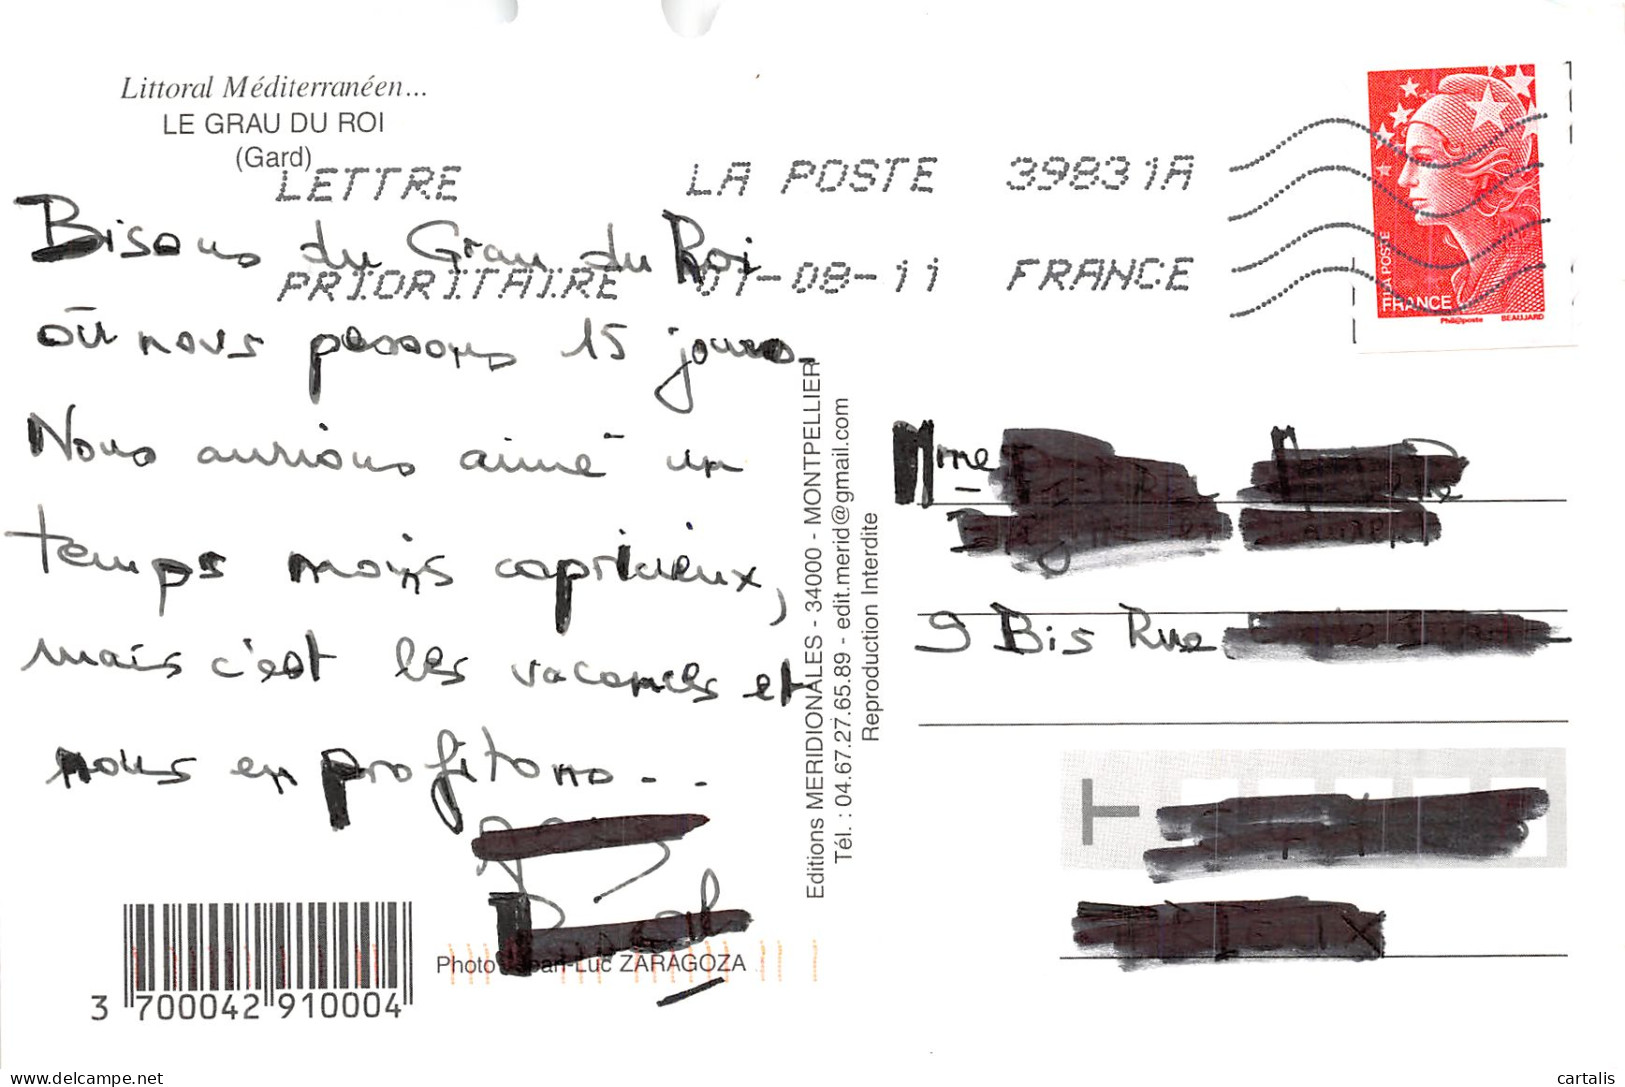 Littoral Méditerranéen...
LE GRAU DU ROI
(Gard)
LETTRE LA POSTE 39831A
PRIORITAIRE 01-08-11 FRANCE
LA POSTE
FRANCE
Phil@poste BEAUJARD
Bisous du Grau du Roi
où nous passons 15 jours.
Nous aurions aimé un
temps moins capricieux,
mais c'est les vacances et
nous en profitons...
Editions MERIDIONALES - 34000 - MONTPELLIER
Tél. : 04.67.27.65.89 - edit.merid@gmail.com
Reproduction Interdite
Mme
9 Bis Rue
Photo Jean-Luc ZARAGOZA
3 700042 910004
delcampe.net
cartalis